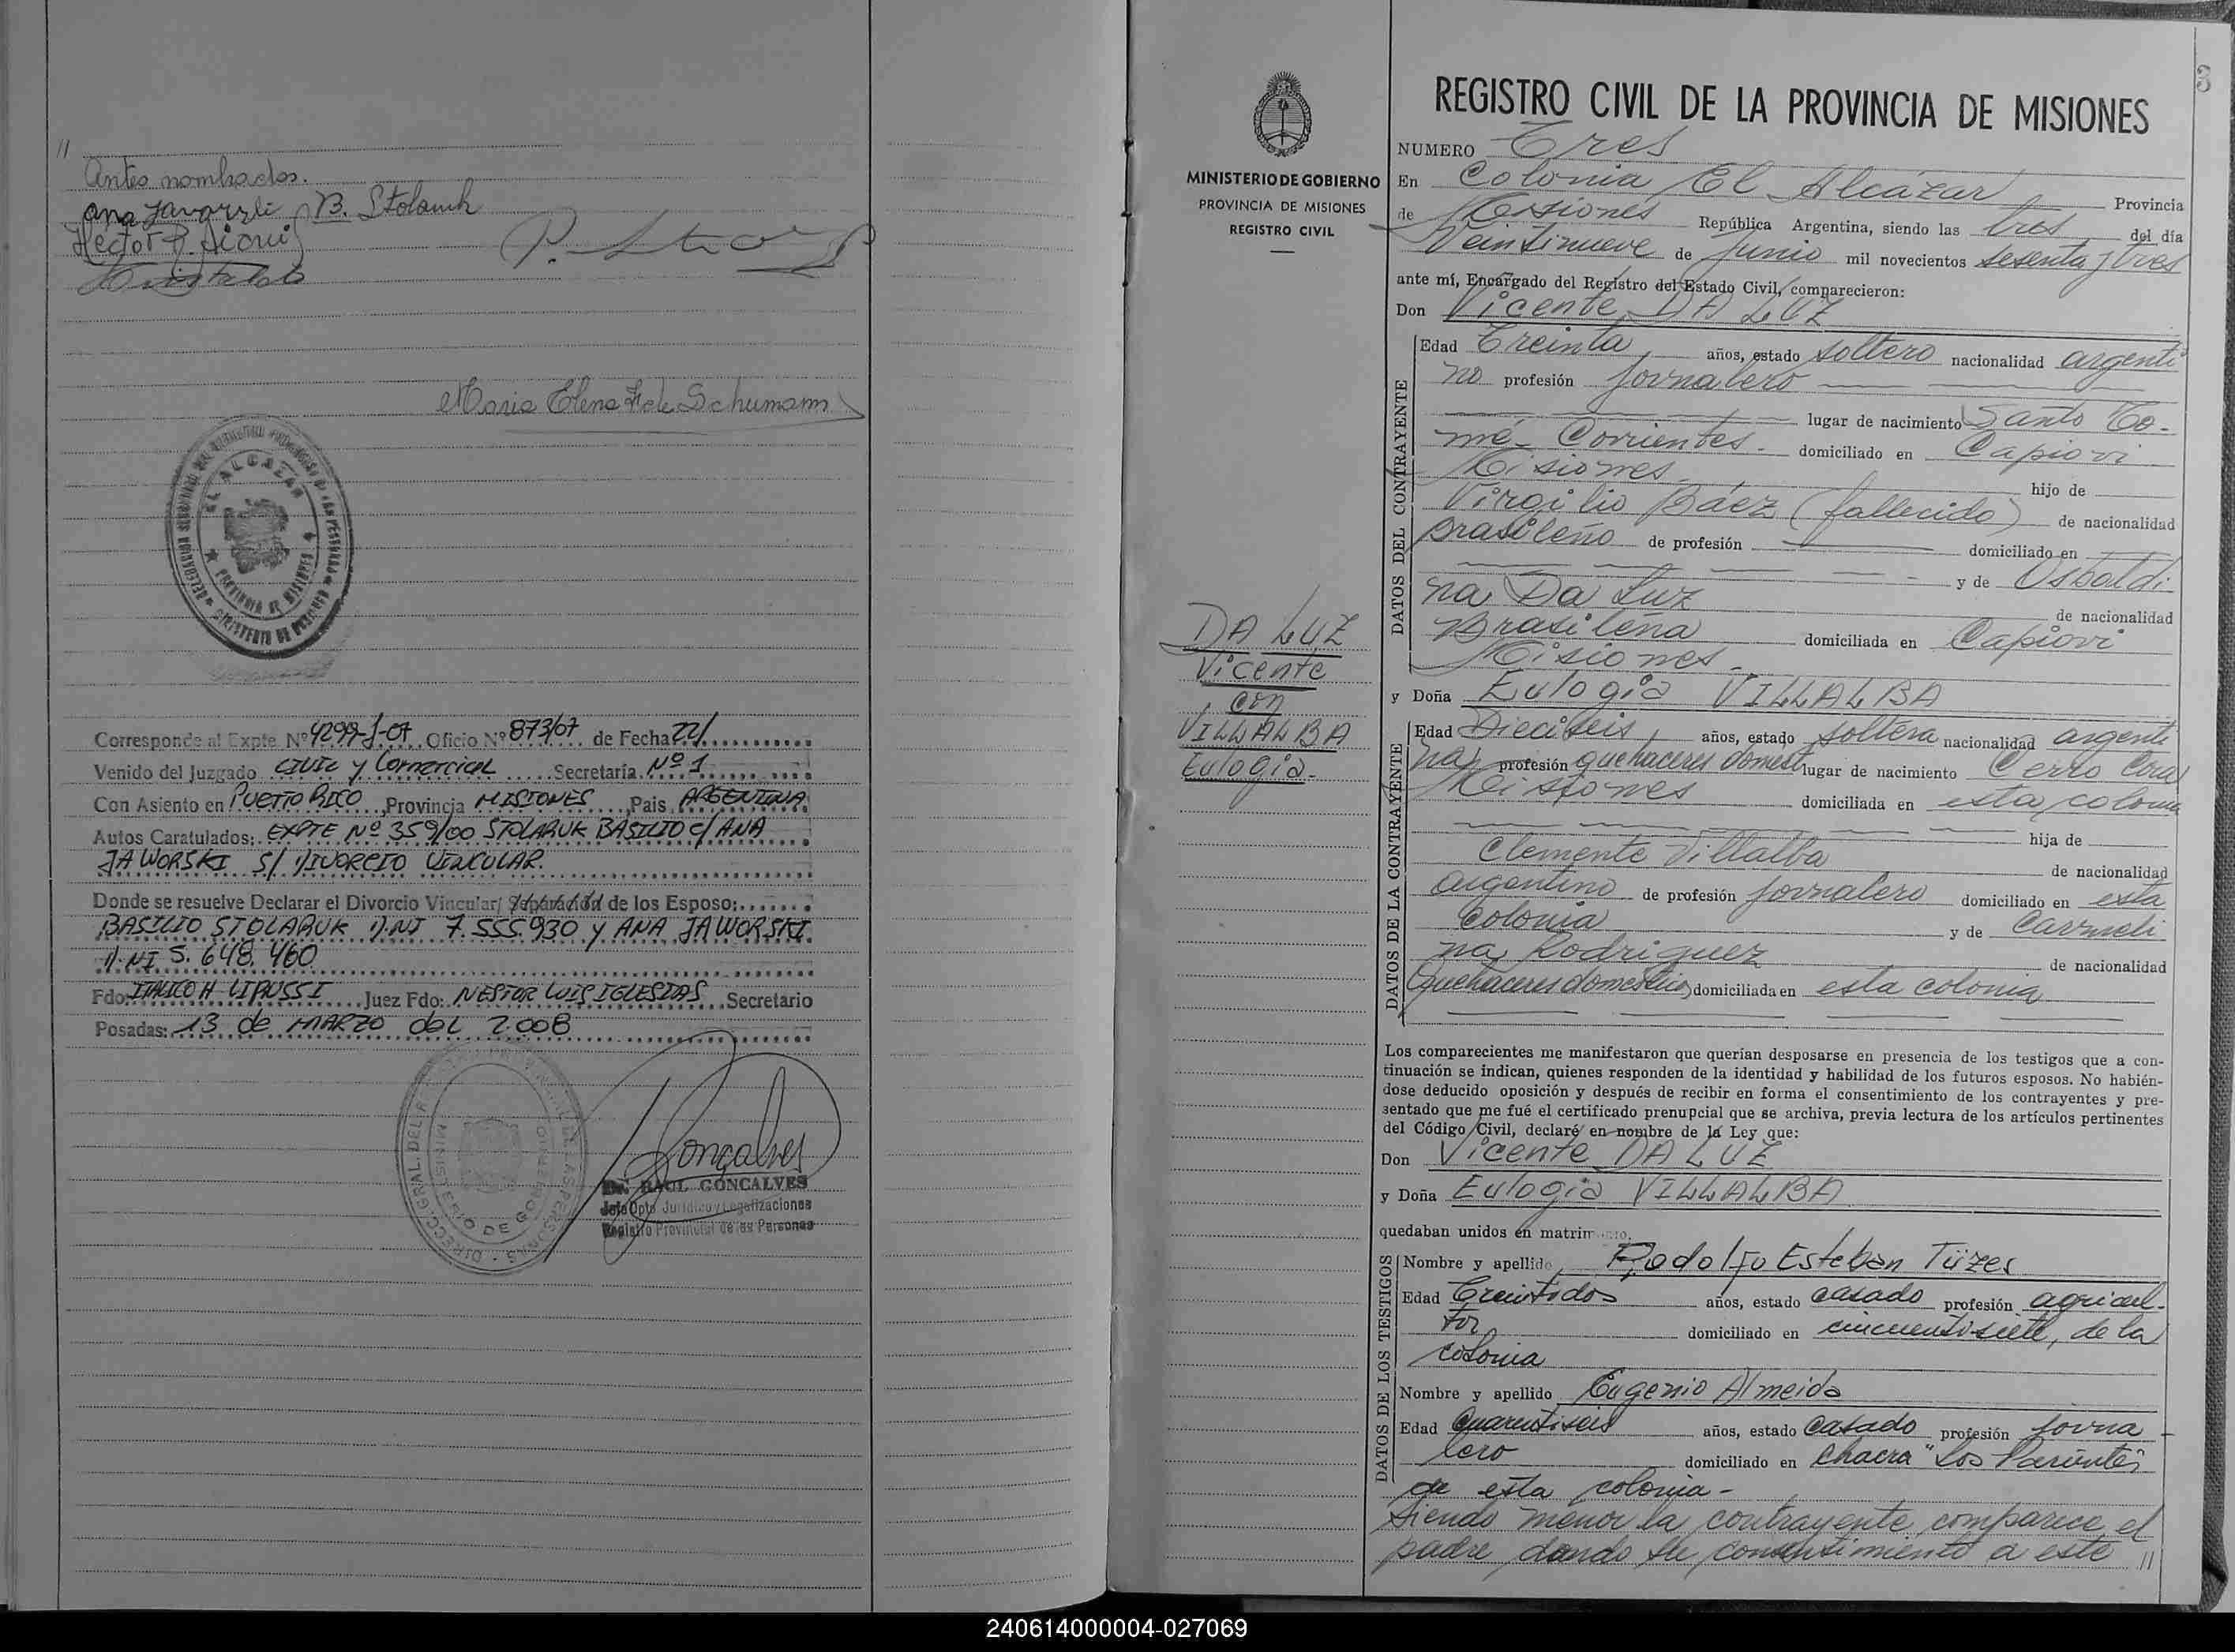 //
Antes nombrados.
Ana Javorski B. Stolaruk
Hector
P.
Maria Elena F. de Schumann
EL ALCAZAR
PROVINCIA DE MISIONES
Corresponde al Expte. Nº 4299-J-07 Oficio Nº 873/07 de Fecha 22/
Venido del Juzgado CIVIL y Comercial Secretaría Nº 1
Con Asiento en PUERTO RICO Provincia MISIONES País ARGENTINA
Autos Caratulados: EXPTE Nº 359/00 STOLARUK BASILIO C/ ANA
JAWORSKI S/ DIVORCIO VINCULAR.
Donde se resuelve Declarar el Divorcio Vincular/ Separación de los Esposo:
BASILIO STOLARUK D.NI 7.555.930 y ANA JAWORSKI
D.NI 5.648.460
Fdo: ITALICO H LIRUSSI Juez Fdo: NESTOR LUIS IGLESIAS Secretario
Posadas: 13 de MARZO del 2.008
Gonçalves
Dr. RAUL GONCALVES
Jefe Dpto Jurídico y Legalizaciones
Registro Provincial de las Personas
3
MINISTERIO DE GOBIERNO
PROVINCIA DE MISIONES
REGISTRO CIVIL
DA LUZ
Vicente
con
VILLALBA
Eulogia.
REGISTRO CIVIL DE LA PROVINCIA DE MISIONES
NUMERO Tres
En Colonia El Alcázar Provincia
de Misiones República Argentina, siendo las tres del día
Veintinueve de Junio mil novecientos sesenta y tres
ante mí, Encargado del Registro del Estado Civil, comparecieron:
Don Vicente DA LUZ
DATOS DEL CONTRAYENTE
Edad Treinta años, estado soltero nacionalidad argenti
no profesión jornalero
lugar de nacimiento Santo To-
mé - Corrientes. domiciliado en Capiovi
Misiones. hijo de
Virgilio Báez (fallecido) de nacionalidad
brasileño de profesión domiciliado en
y de Osbaldi
na Da Luz de nacionalidad
Brasileña domiciliada en Capiovi
Misiones.
y Doña Eulogia VILLALBA
DATOS DE LA CONTRAYENTE
Edad Dieciseis años, estado soltera nacionalidad argenti
na profesión quehaceres domest lugar de nacimiento Cerro Corá
Misiones domiciliada en esta colonia
hija de
Clemente Villalba de nacionalidad
argentino de profesión jornalero domiciliado en esta
Colonia y de Carmeli
na Rodriguez de nacionalidad
Quehaceres domestico domiciliada en esta colonia
Los comparecientes me manifestaron que querían desposarse en presencia de los testigos que a con-
tinuación se indican, quienes responden de la identidad y habilidad de los futuros esposos. No habién-
dose deducido oposición y después de recibir en forma el consentimiento de los contrayentes y pre-
sentado que me fué el certificado prenupcial que se archiva, previa lectura de los artículos pertinentes
del Código Civil, declaré en nombre de la Ley que:
Don Vicente DA LUZ
y Doña Eulogia VILLALBA
quedaban unidos en matrimonio.
DATOS DE LOS TESTIGOS
Nombre y apellido Rodolfo Esteban Tüzes
Edad Treintidos años, estado casado profesión agricul-
tor domiciliado en cincuentisiete, de la
colonia
Nombre y apellido Eugenio Almeida
Edad Cuarentiseis años, estado casado profesión jorna
lero domiciliado en chacra "Los Parientes"
de esta colonia -
Siendo menor la contrayente comparece el
padre, dando su consentimiento a este //
240614000004-027069